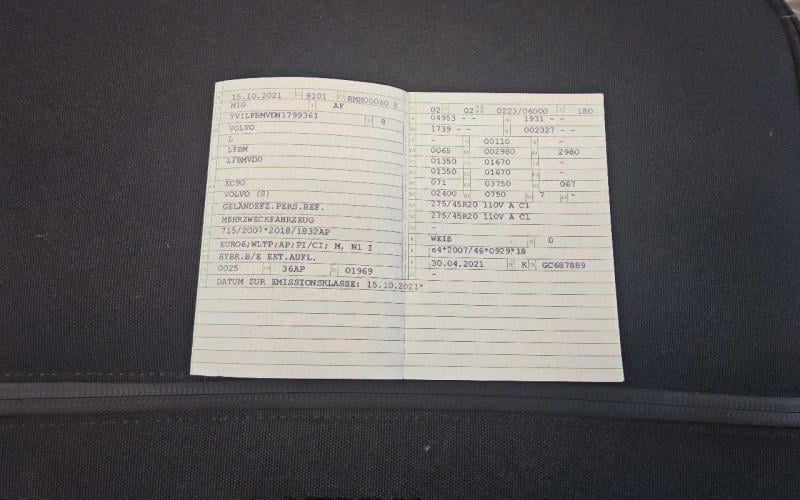 15.10.2021 9101 BMH00060 8
M1G AF
YV1LFBMVDN1799361 8
VOLVO
L
LFBM
LFBMVD0
XC90
VOLVO (S)
GELÄNDEFZ.PERS.BEF.
MEHRZWECKFAHRZEUG
715/2007*2018/1832AP
EURO6;WLTP;AP;PI/CI; M, N1 I
HYBR.B/E EXT.AUFL.
0025 36AP 01969
DATUM ZUR EMISSIONSKLASSE: 15.10.2021*
02 02 0223/06000 180
04953 - - 1931 - -
1739 - - 002327 - -
- 00110 -
0065 002980 2980
01350 01670 -
01350 01670 -
071 03750 067
02400 0750 7 -
275/45R20 110V A C1
275/45R20 110V A C1
-
WEIß 0
e4*2007/46*0929*18
30.04.2021 K GC687889
-